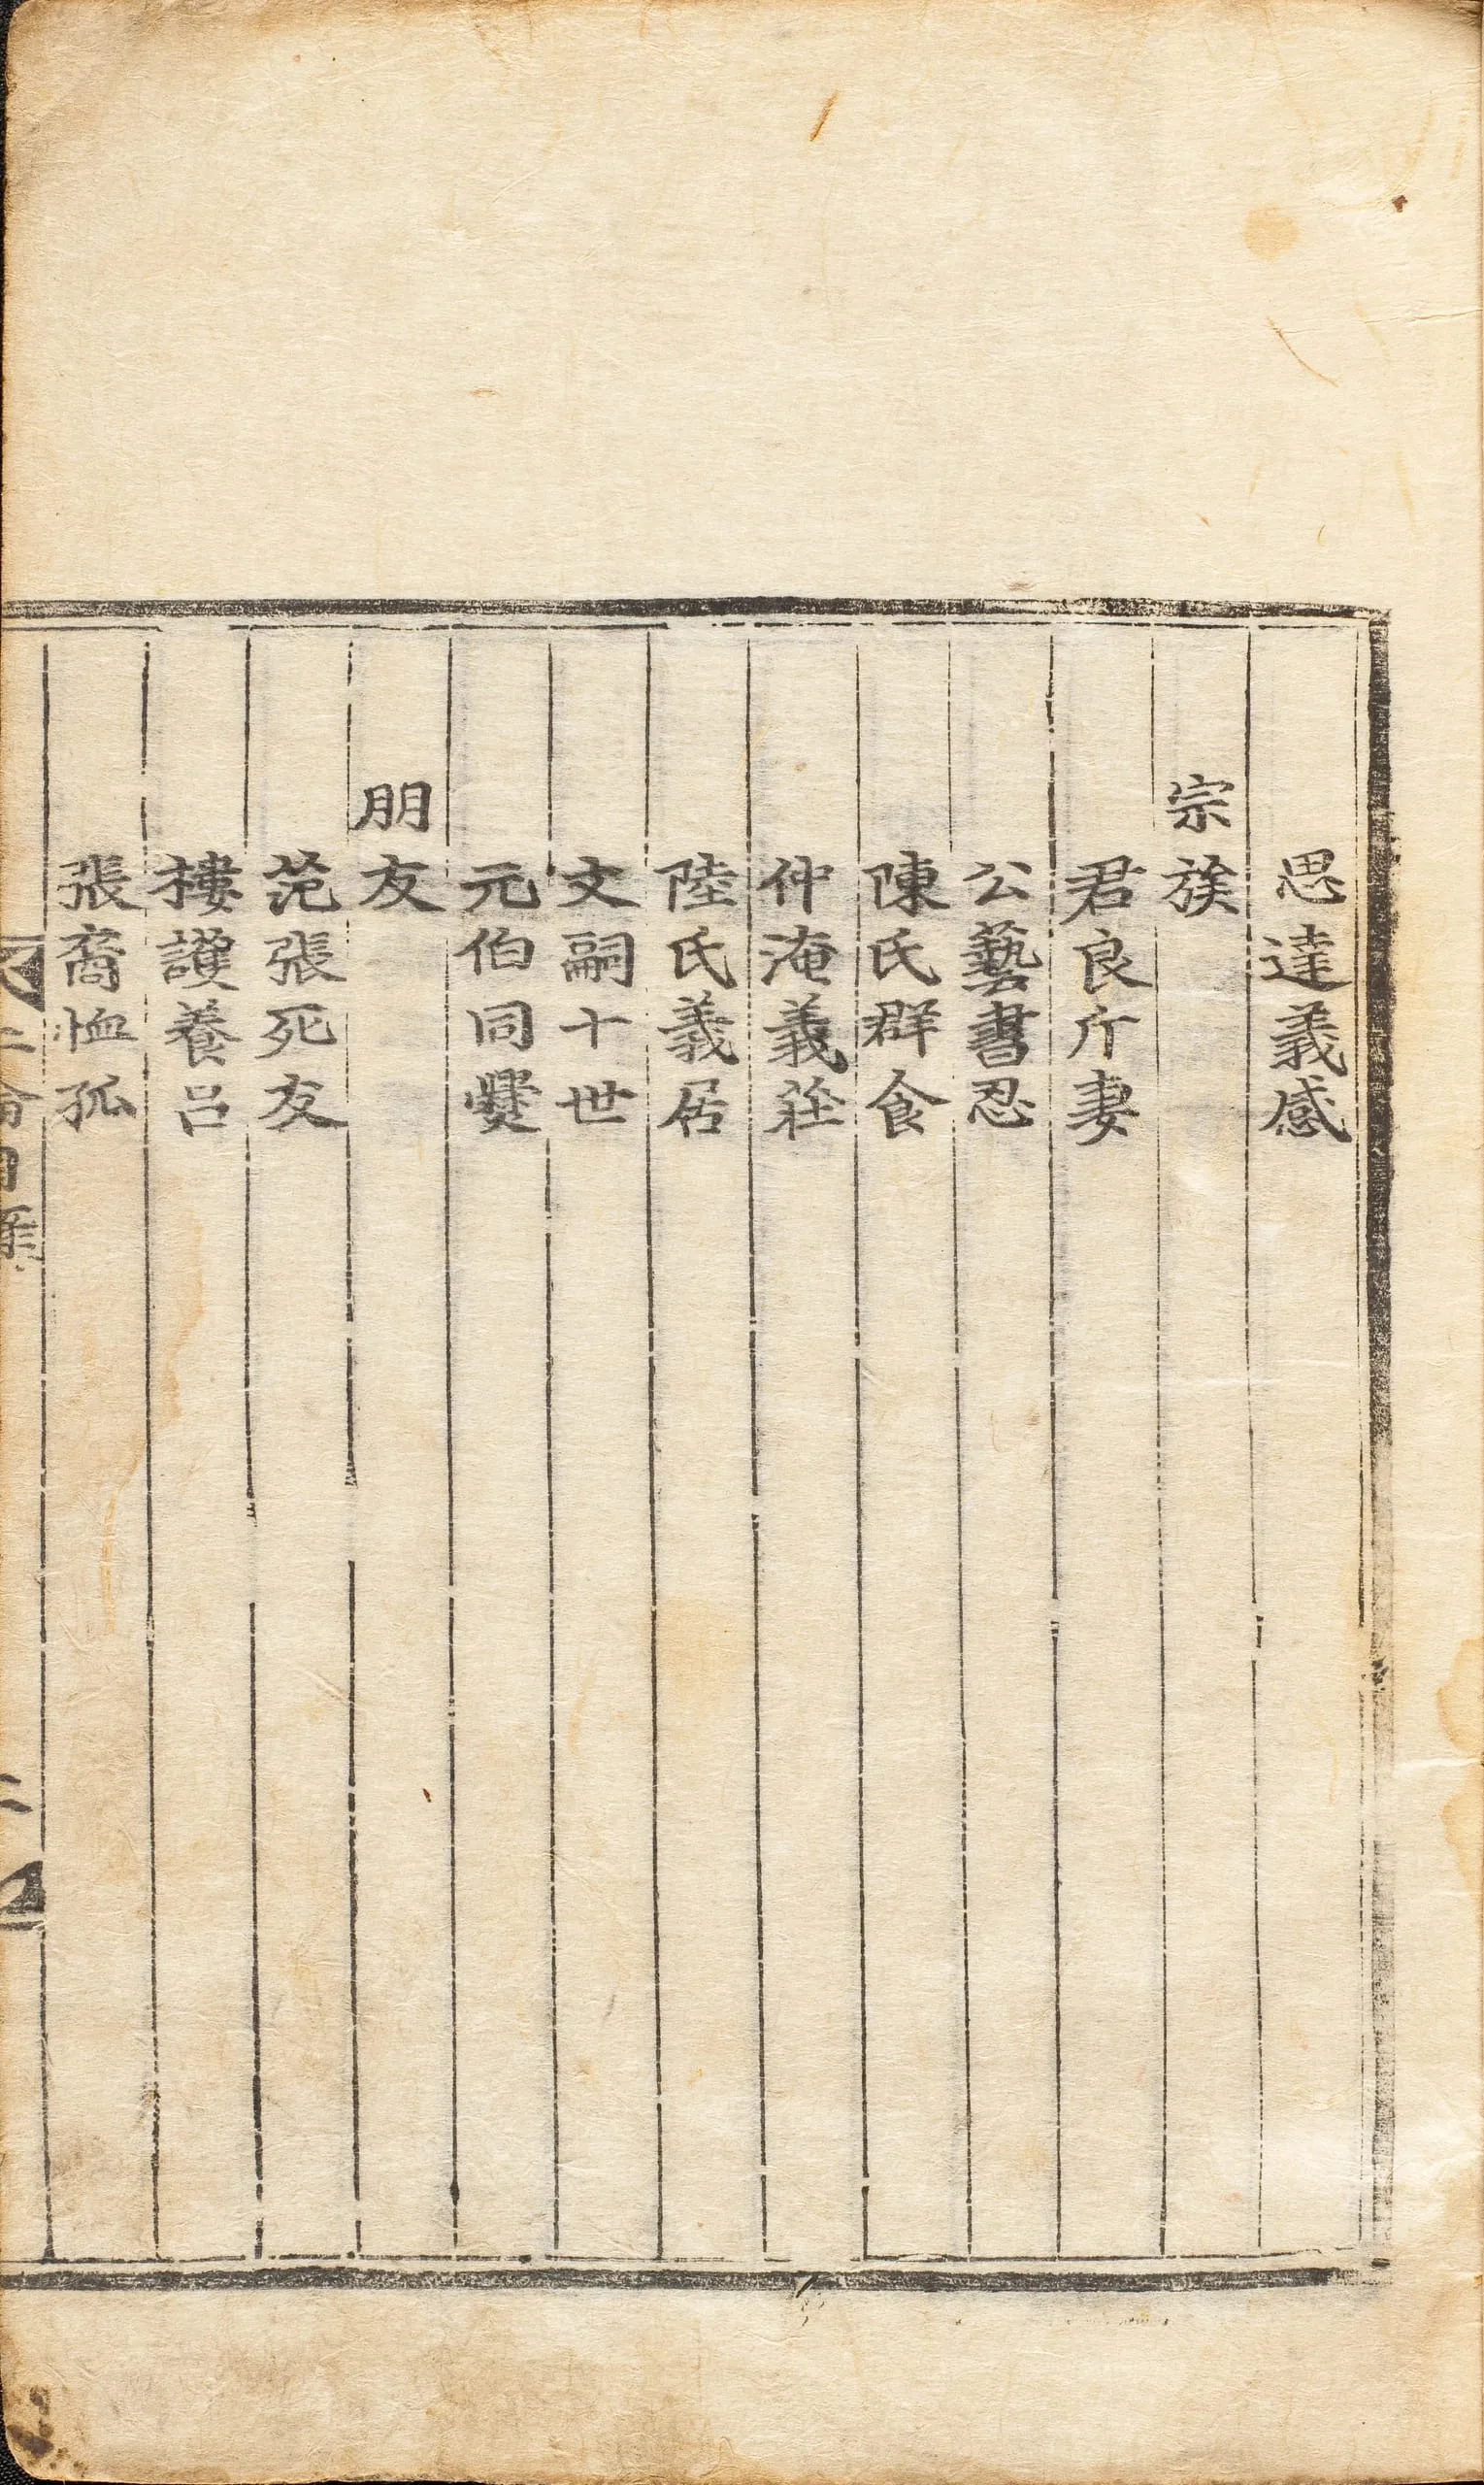 思達義感
宗族
君良斤妻
公藝書忍
陳氏群食
仲淹義莊
陸氏義居
文嗣十世
元伯同爨
朋友
范張死友
樓護養呂
張裔恤孤
二